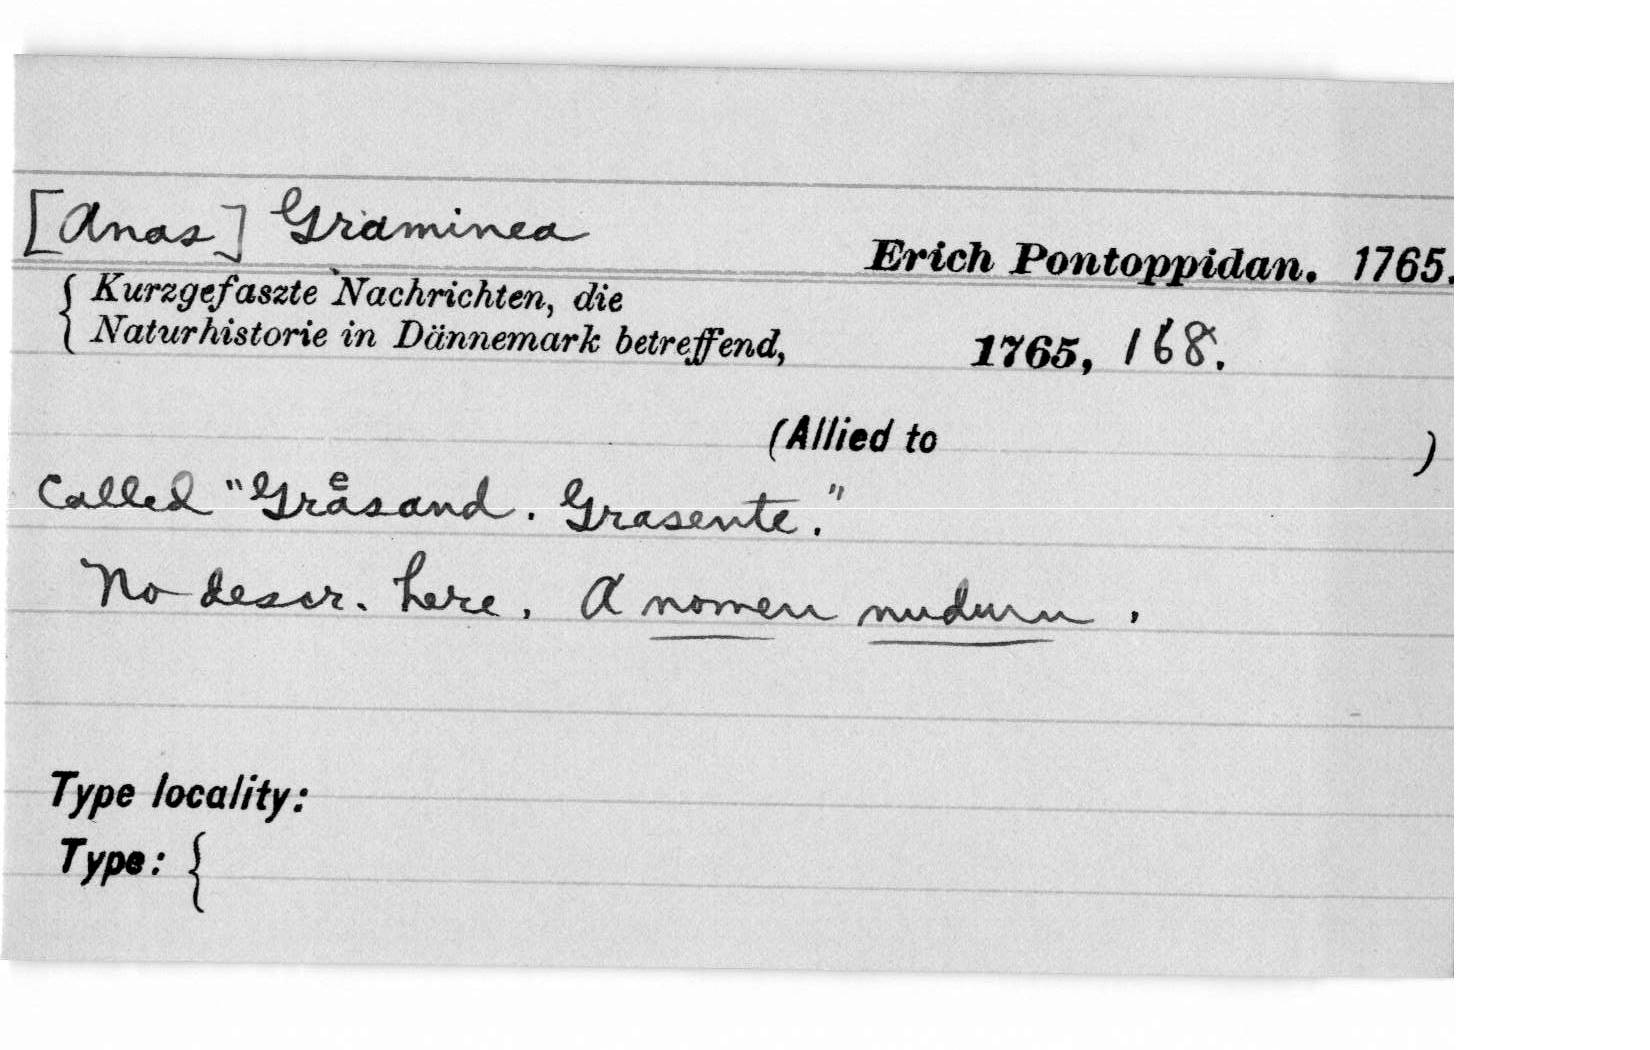 [Anas] Graminea
Erich Pontoppidan. 1765.
{ Kurzgefaszte Nachrichten, die
Naturhistorie in Dännemark betreffend, 1765, 168.
(Allied to )
Called "Graͤsand. Grasente."
No descr. here. A nomen nudum.
Type locality:
Type: {